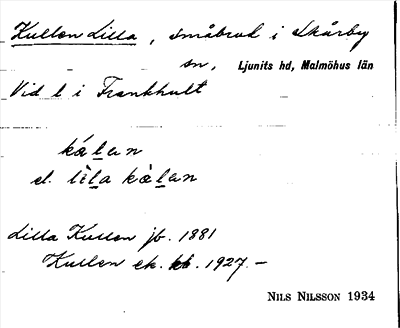 Kullen Lilla, småbruk i Skårby
sn, Ljunits hd, Malmöhus län
Vid l i Frankhult
kálan
el. lìla kàlan
Lilla Kullen jb. 1881
Kullen ek. kb. 1927. –
NILS NILSSON 1934